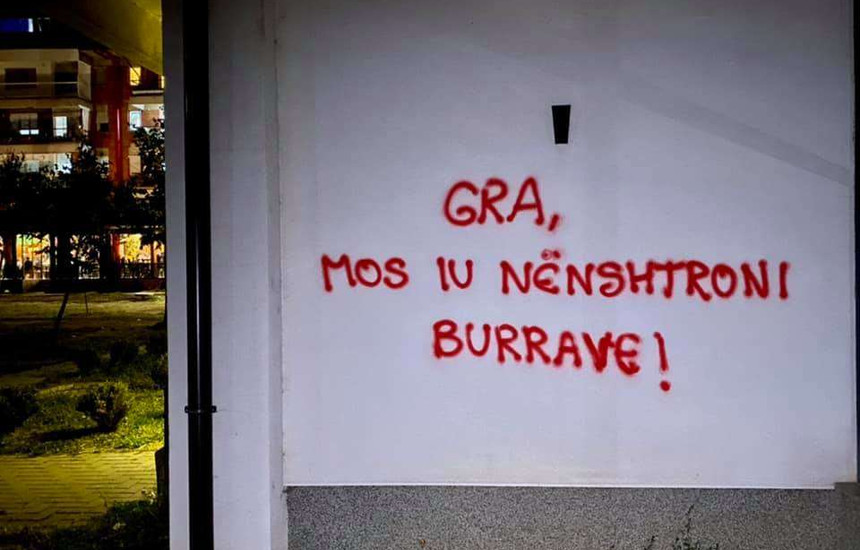 GRA,
MOS IU NËNSHTRONI
BURRAVE!